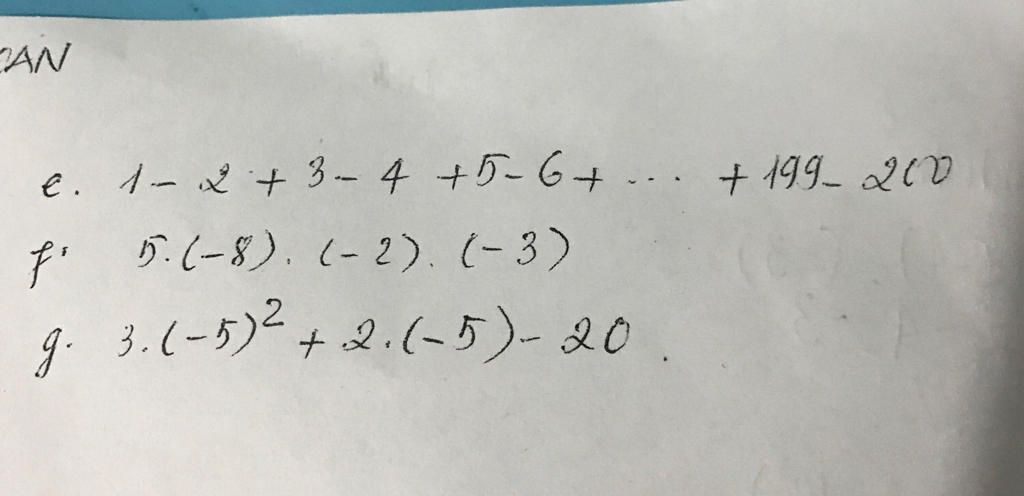 e. 1 - 2 + 3 - 4 + 5 - 6 + ... + 199 - 200
f. 5.(-8).(-2).(-3)
g. 3.(-5)² + 2.(-5) - 20.